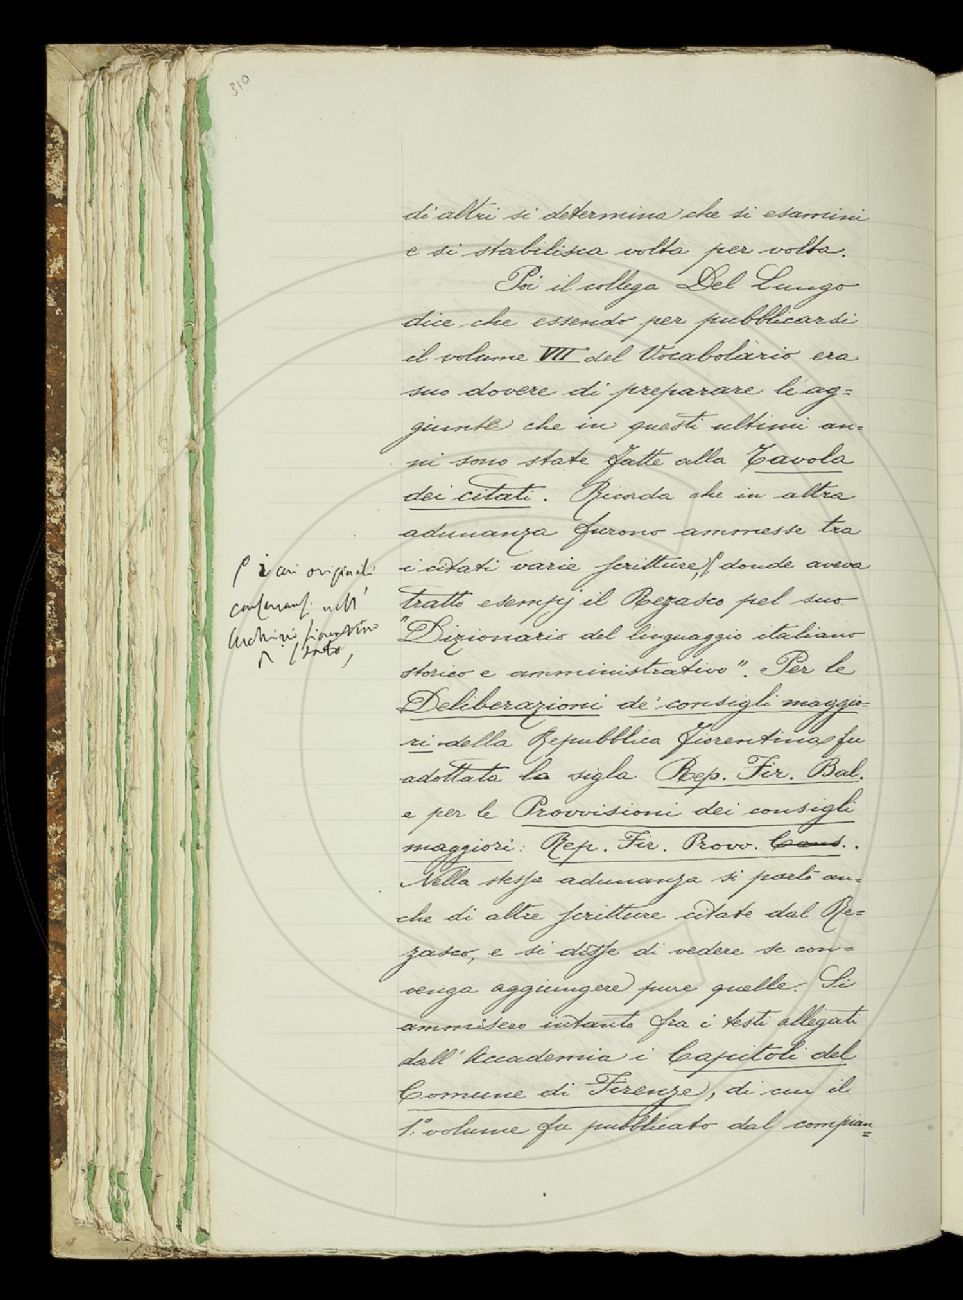 310
di altri si determina che si esamini
e si stabilisca volta per volta.
Poi il collega Del Lungo
dice che essendo per pubblicarsi
il volume VII del Vocabolario era
suo dovere di preparare le ag=
giunte che in questi ultimi an=
ni sono state fatte alla Tavola
dei citati. Ricorda che in altra
adunanza furono ammesse tra
i citati varie scritture, donde aveva
tratto esempj il Rezasco pel suo
"Dizionario del linguaggio italiano
storico e amministrativo". Per le
Deliberazioni de' consigli maggio=
ri della Repubblica Fiorentina fu
adottata la sigla Rep. Fir. Bal.
e per le Provvisioni dei consigli
maggiori: Rep. Fir. Provv. Cons..
Nella stessa adunanza si parlò an=
che di altre scritture citate dal Re=
zasco, e si disse di vedere se con=
venga aggiungere pure quelle. Si
ammisero intanto fra i testi allegati
dall'Accademia i Capitoli del
Comune di Firenze, di cui il
1.° volume fu pubblicato dal compian=
i cui originali
conservansi nell'
Archivio fiorentino
di Stato,